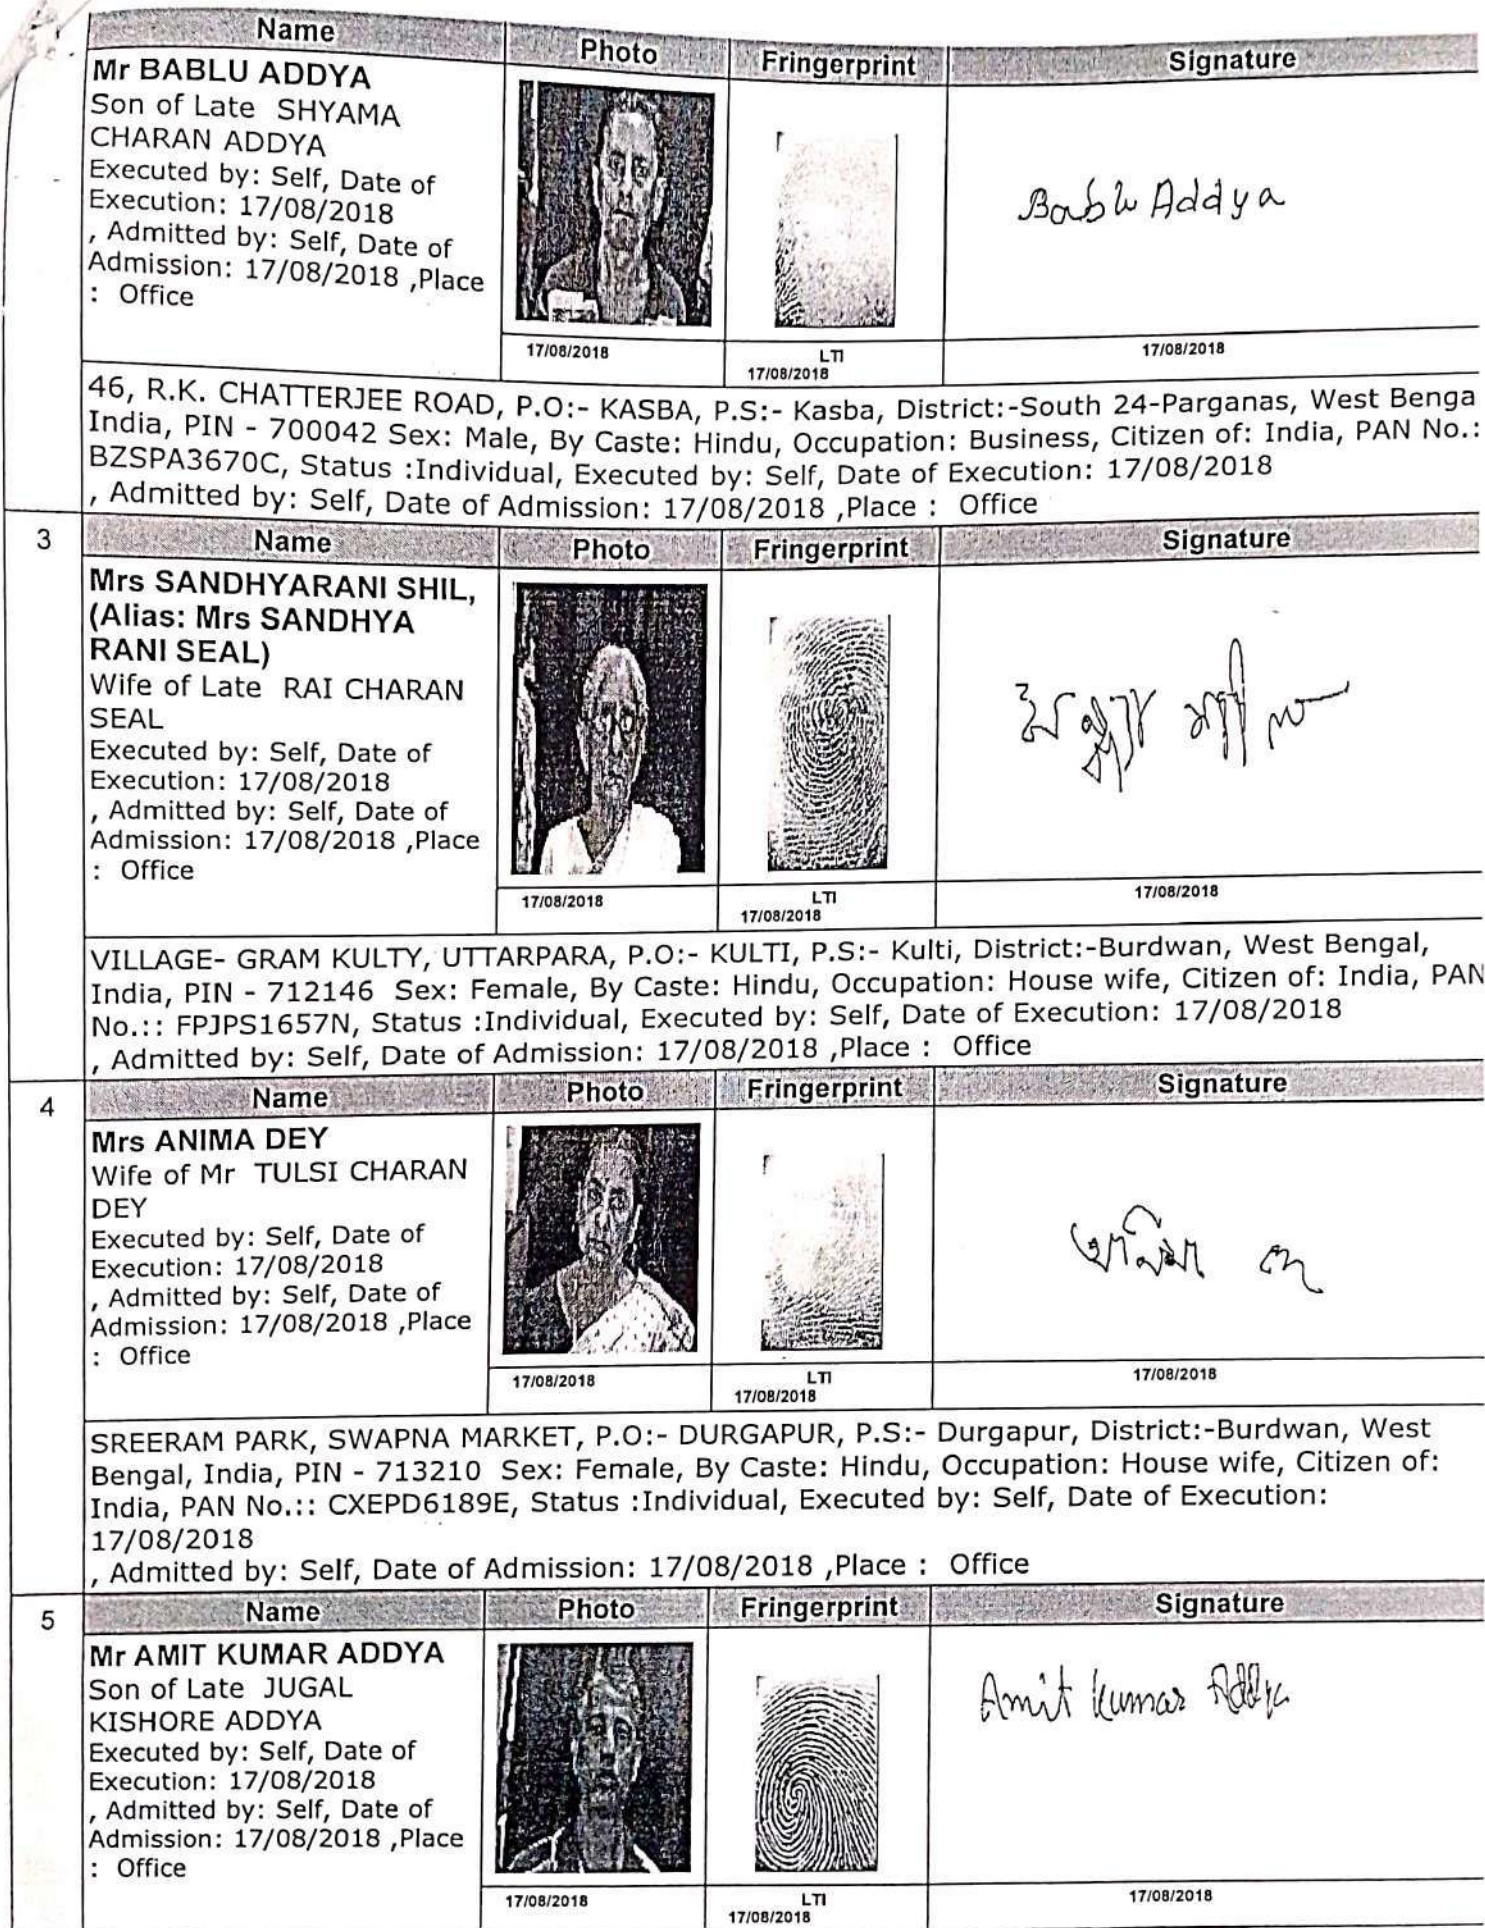 Name Photo Fringerprint Signature
Mr BABLU ADDYA
Son of Late SHYAMA
CHARAN ADDYA
Executed by: Self, Date of
Execution: 17/08/2018
, Admitted by: Self, Date of
Admission: 17/08/2018 ,Place
: Office
Bablu Addya
17/08/2018 LTI 17/08/2018
17/08/2018
46, R.K. CHATTERJEE ROAD, P.O:- KASBA, P.S:- Kasba, District:-South 24-Parganas, West Benga
India, PIN - 700042 Sex: Male, By Caste: Hindu, Occupation: Business, Citizen of: India, PAN No.:
BZSPA3670C, Status :Individual, Executed by: Self, Date of Execution: 17/08/2018
, Admitted by: Self, Date of Admission: 17/08/2018 ,Place : Office
3 Name Photo Fringerprint Signature
Mrs SANDHYARANI SHIL,
(Alias: Mrs SANDHYA
RANI SEAL)
Wife of Late RAI CHARAN
SEAL
Executed by: Self, Date of
Execution: 17/08/2018
, Admitted by: Self, Date of
Admission: 17/08/2018 ,Place
: Office
17/08/2018 LTI 17/08/2018
17/08/2018
VILLAGE- GRAM KULTY, UTTARPARA, P.O:- KULTI, P.S:- Kulti, District:-Burdwan, West Bengal,
India, PIN - 712146 Sex: Female, By Caste: Hindu, Occupation: House wife, Citizen of: India, PAN
No.:: FPJPS1657N, Status :Individual, Executed by: Self, Date of Execution: 17/08/2018
, Admitted by: Self, Date of Admission: 17/08/2018 ,Place : Office
4 Name Photo Fringerprint Signature
Mrs ANIMA DEY
Wife of Mr TULSI CHARAN
DEY
Executed by: Self, Date of
Execution: 17/08/2018
, Admitted by: Self, Date of
Admission: 17/08/2018 ,Place
: Office
অনিমা দে
17/08/2018 LTI 17/08/2018
17/08/2018
SREERAM PARK, SWAPNA MARKET, P.O:- DURGAPUR, P.S:- Durgapur, District:-Burdwan, West
Bengal, India, PIN - 713210 Sex: Female, By Caste: Hindu, Occupation: House wife, Citizen of:
India, PAN No.:: CXEPD6189E, Status :Individual, Executed by: Self, Date of Execution:
17/08/2018
, Admitted by: Self, Date of Admission: 17/08/2018 ,Place : Office
5 Name Photo Fringerprint Signature
Mr AMIT KUMAR ADDYA
Son of Late JUGAL
KISHORE ADDYA
Executed by: Self, Date of
Execution: 17/08/2018
, Admitted by: Self, Date of
Admission: 17/08/2018 ,Place
: Office
Amit Kumar Addya
17/08/2018 LTI 17/08/2018
17/08/2018